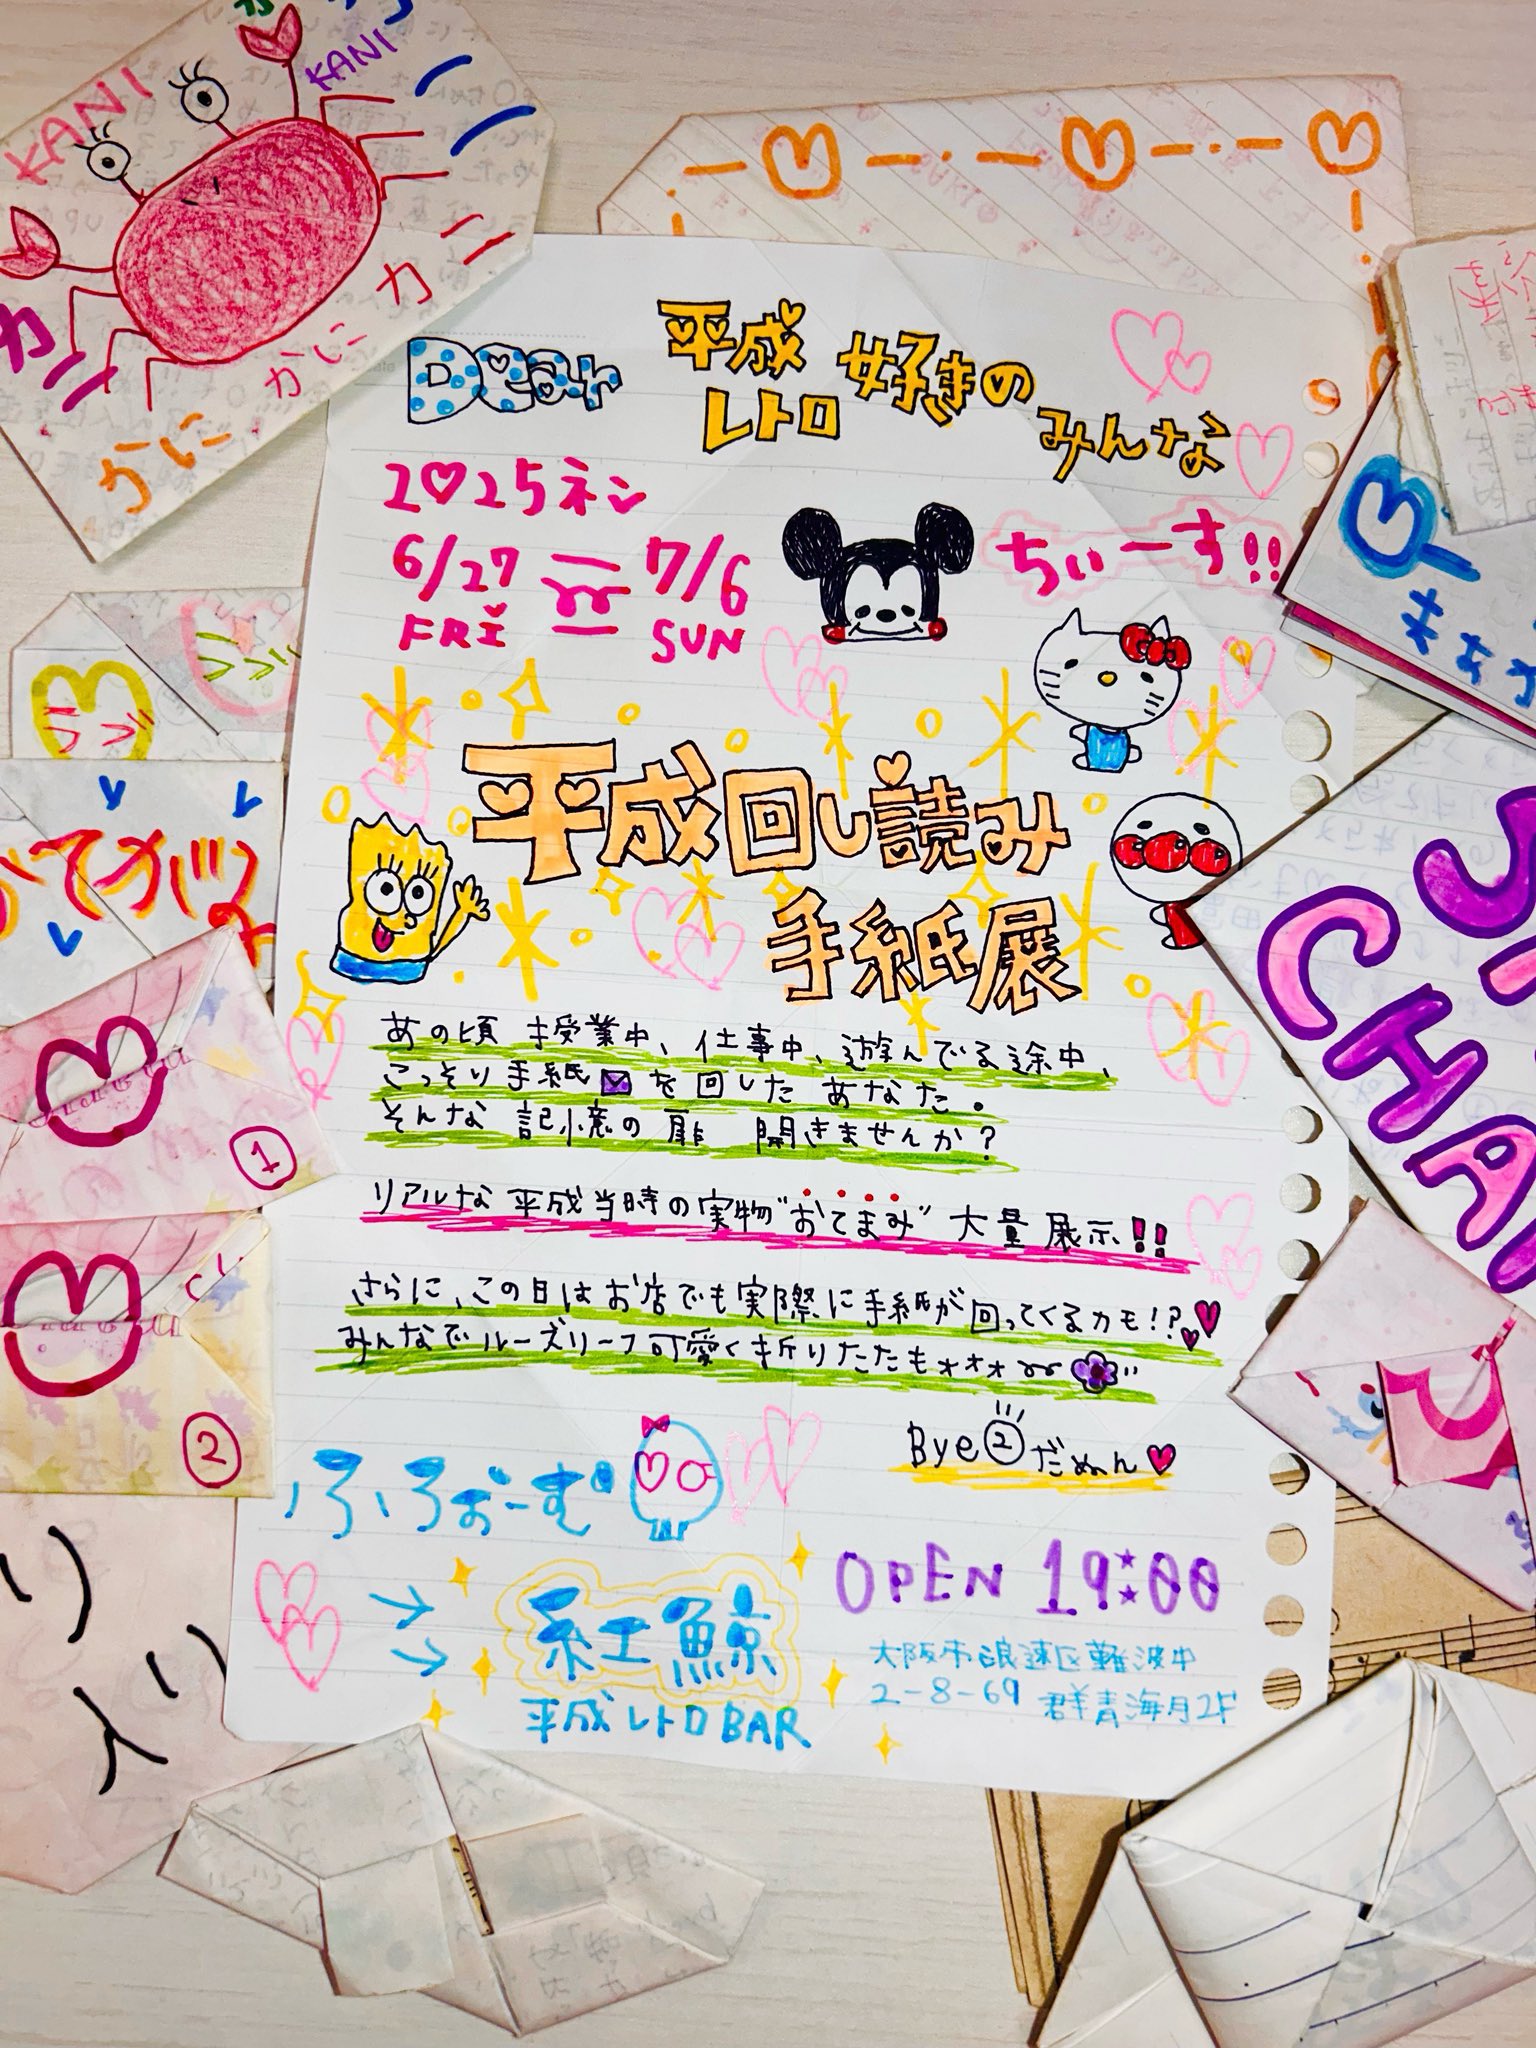 KANI
KANI
カニ
かに
カニ
かに
Dear
平成
レトロ
好きの
みんな
2025ネン
ちぃーす!!
6/27
7/6
FRI
SUN
平成回し読み
手紙展
あの頃 授業中、仕事中、遊んでる途中、
こっそり手紙を回したあなた。
そんな 記憶の扉 開きませんか?
リアルな平成当時の実物"おてまみ" 大量展示!!
さらに、この日はお店でも実際に手紙が回ってくるカモ!?
みんなでルーズリーフ可愛く折りたたもォォォ
Bye②だぬん
ふろむ
OPEN 19:00
→ 紅鯨
→
平成レトロBAR
大阪市浪速区難波中
2-8-69 群青海月2F
ラブ
ラブ
おてがみ
①
②
CHA